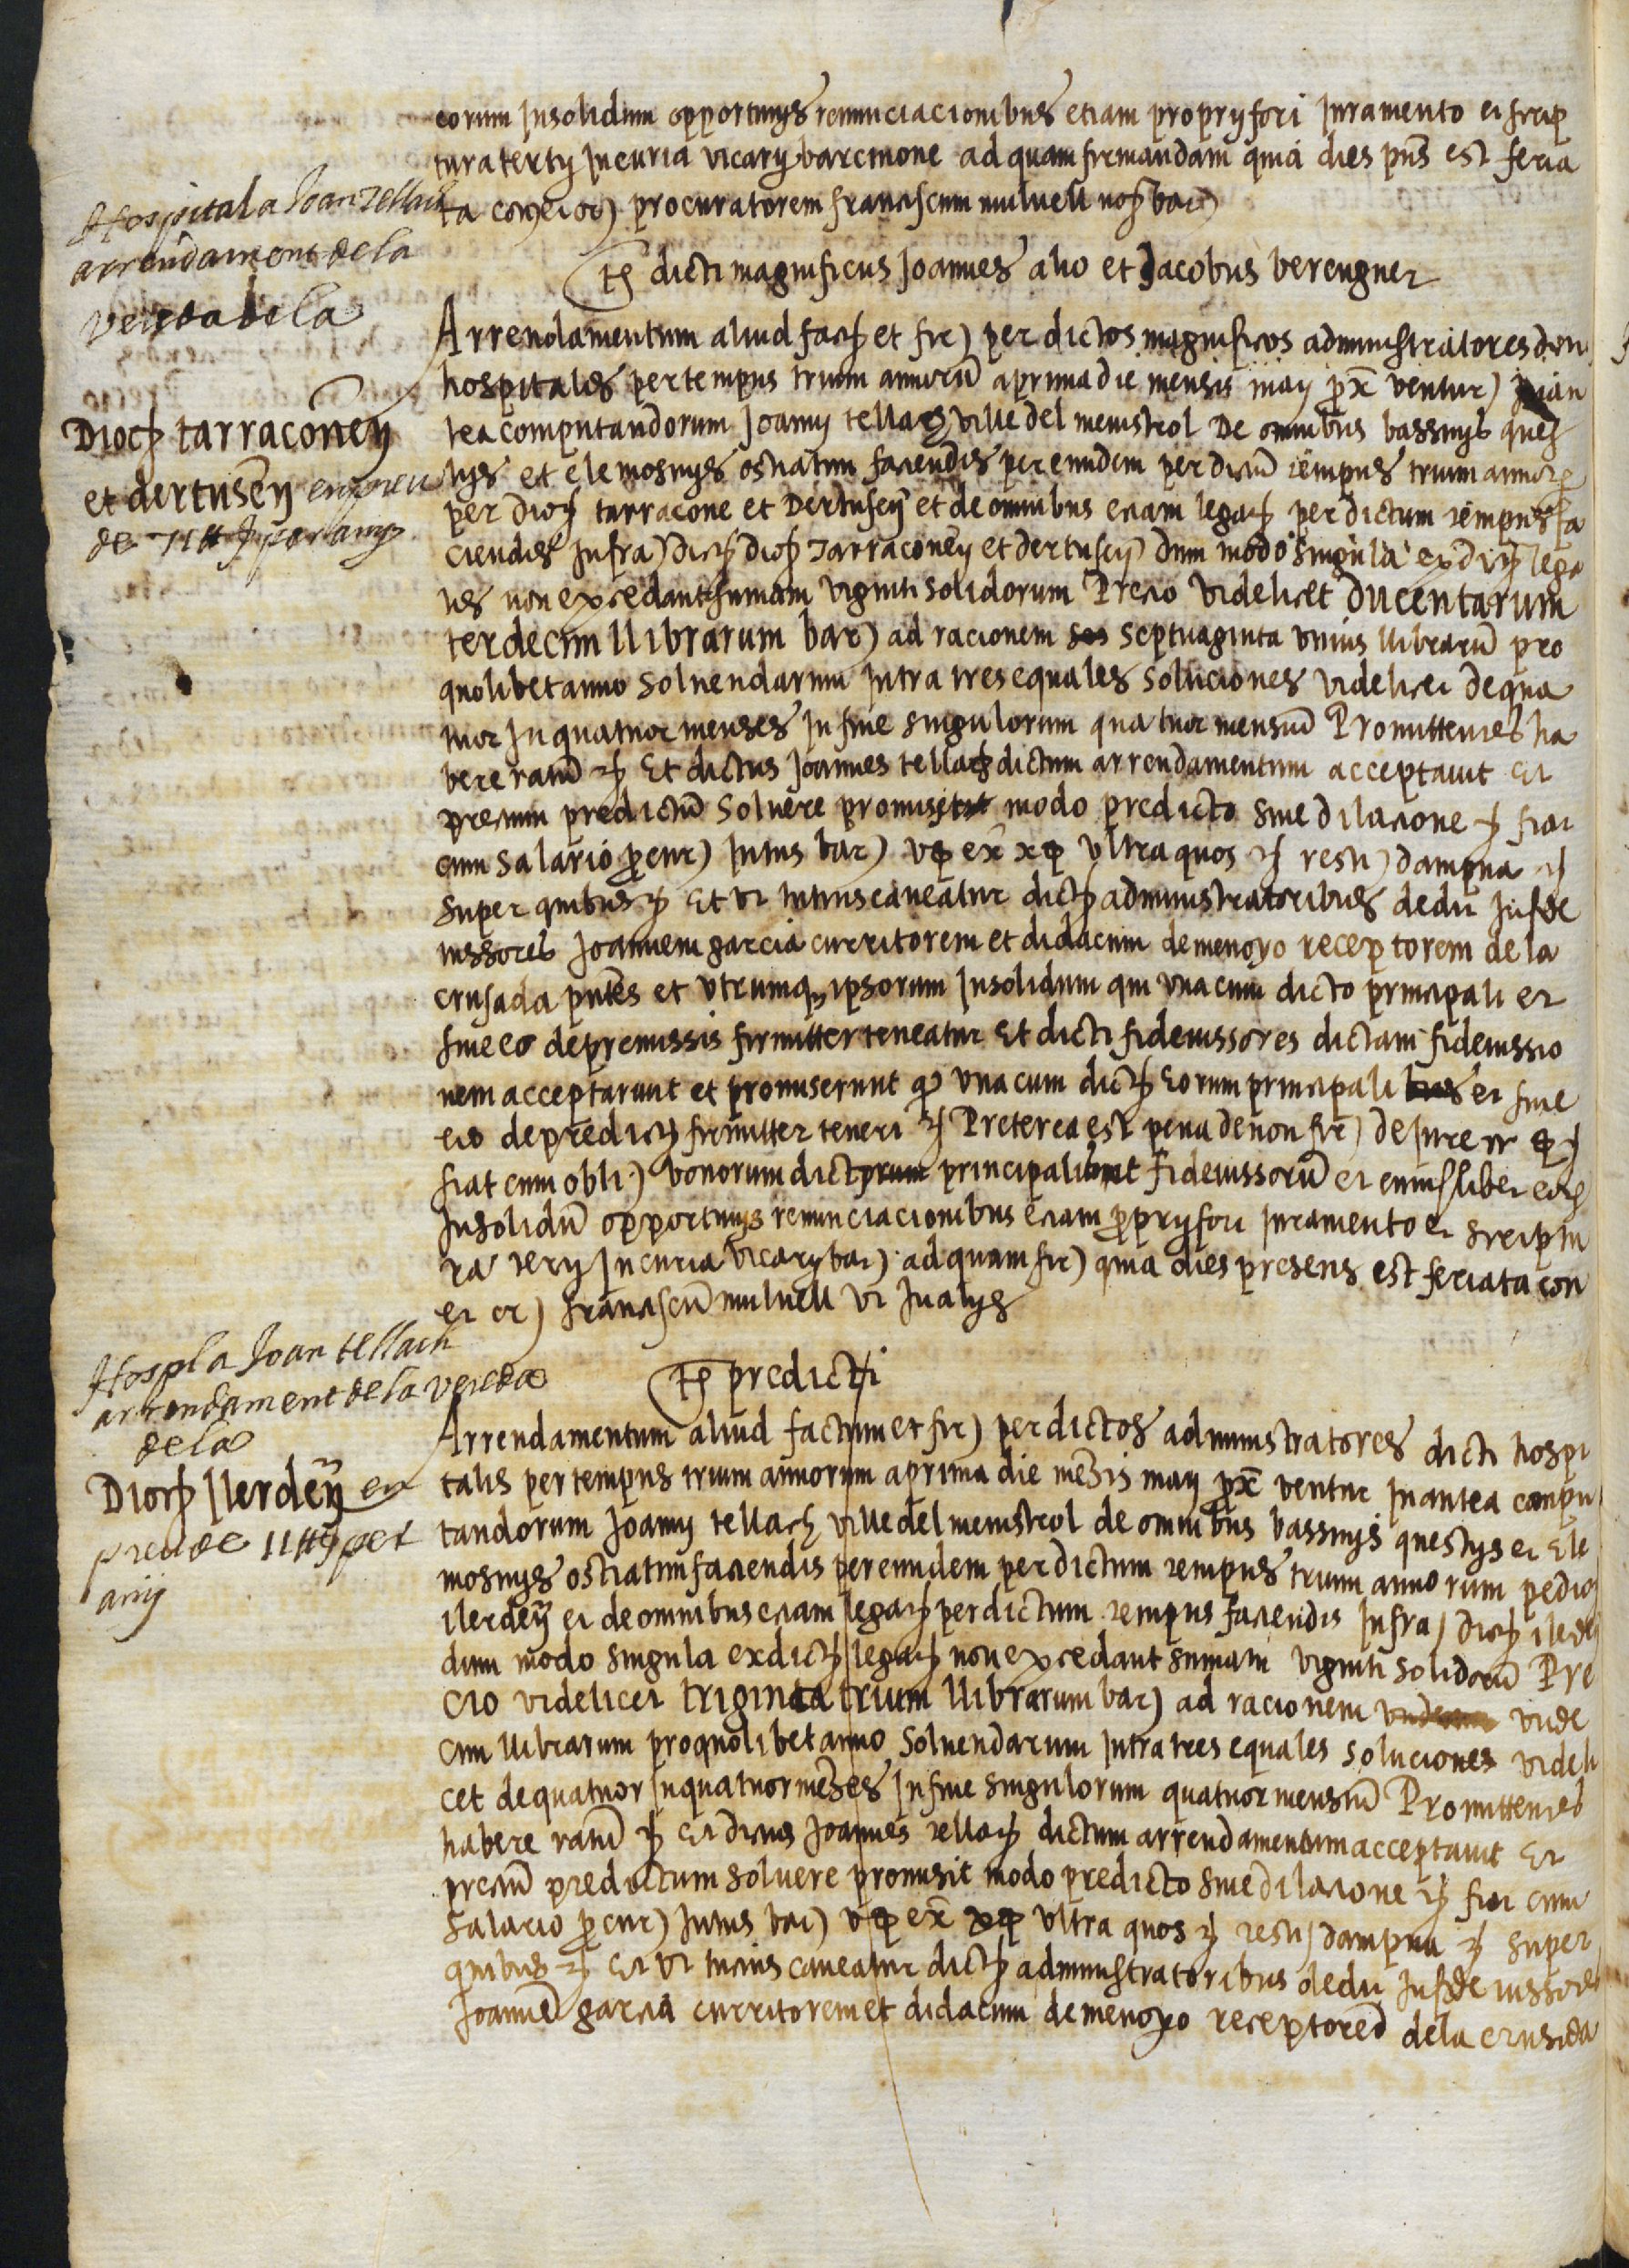 eorum Insolidum opportunys renunciacionibus etiam propry fori Juramento et scrip
tura terty In curia vicary barcinone ad quam firmandam quia dies pns est feria
ta procuratorem franciscum mulnell not bar)
Hospital a Joan Tellach
arrendament de la
vereda de la
Dioc tarraconen
et dertusen en preu
de 71 ll per any
Its dicti magnificus Joannes alio et Jacobus berenguer
Arrendamentum aliud fact et fir) per dictos magnificos administratores den
hospitales per tempus trium annorum a prima die mensis may prx ventur) Inan
tea computandorum Joanny tellag ville del menistrol De omnibus bassinys ques
tys et elemosnys ostiatim faciendis per eundem per dictum tempus trium annor
per dioc tarracone et Dertusen et de omnibus eciam legat per dictum tempus fa
ciendis Infra) dict dioc Tarraconen et dertusen dum modo singula ex dict lega
tis non excedant sumam viginti solidorum Precio videlicet Ducentarum
terdecim llibrarum bar) ad racionem septuaginta unius llibrarum pro
quolibet anno solvendarum Intra tres equales soluciones videlicet de qua
tuor In quatuor menses In fine singulorum quatuor mensium Promittentes ha
bere ratum etc Et dictus Joannes tellach dictum arrendamentum acceptavit Et
precium predictum solvere promisit modo predicto sine dilacione etc fiat
cum salario procur) Intus bar) v ex x ultra quos etc resti) dampna etc
super quibus etc Et ut tutius caveatur dict administratoribus dedit In fide
iussores Joannem garcia curritorem et didacum de menoyo receptorem de la
crusada pntes et utrumq ipsorum Insolidum qui una cum dicto principali et
sine eo de premissis firmitter teneatur Et dicti fideiussores dictam fideiussio
nem acceptarunt et promiserunt q una cum dict eorum principali et sine
eo de predict firmitter teneri etc Preterea est pena de non fir) de Jure
fiat cum obli) bonorum dictorum principalium et fideiussorum et cuiuslibet eor
Insolidum opportunys renunciacionibus eciam propry fori Juramento et scriptu
ra tercy In curia vicary bar) ad quam fir) quia dies presens est feriata con
et er) franciscum mulnell ut In alys
Hospl a Joan tellach
arrendament de la vereda
de la
Dioc Ilerden en
preu de 11 ll per
any
Its predicti
Arrendamentum aliud factum et fir) per dictos administratores dicti hospi
talis per tempus trium annorum a prima die mensis may prx ventur Inantea compu
tandorum Joanny tellach ville del menistrol de omnibus bassinys questys et ele
mosnys ostiatim faciendis per eundem per dictum tempus trium annorum pe dioc
ilerden et de omnibus eciam legat per dictum tempus faciendis Infra) dioc ileden
dum modo singula ex dict legat non excedant sumam viginti solidorum Pre
cio videlicet triginta trium llibrarum bar) ad racionem unde
cim llibrarum pro quolibet anno solvendarum Intra tres equales soluciones videli
cet de quatuor In quatuor menses In fine singulorum quatuor mensium Promittentes
habere ratum etc Et dictus Joannes tellach dictum arrendamentum acceptavit Et
precium predictum solvere promisit modo predicto sine dilacione etc fiat cum
salario procur) Intus bar) v ex x ultra quos etc resti) dampna etc super
quibus etc Et ut tucius caveatur dict administratoribus dedit In fide iussores
Joannem garcia curritorem et didacum de menoyo receptorem de la crusada